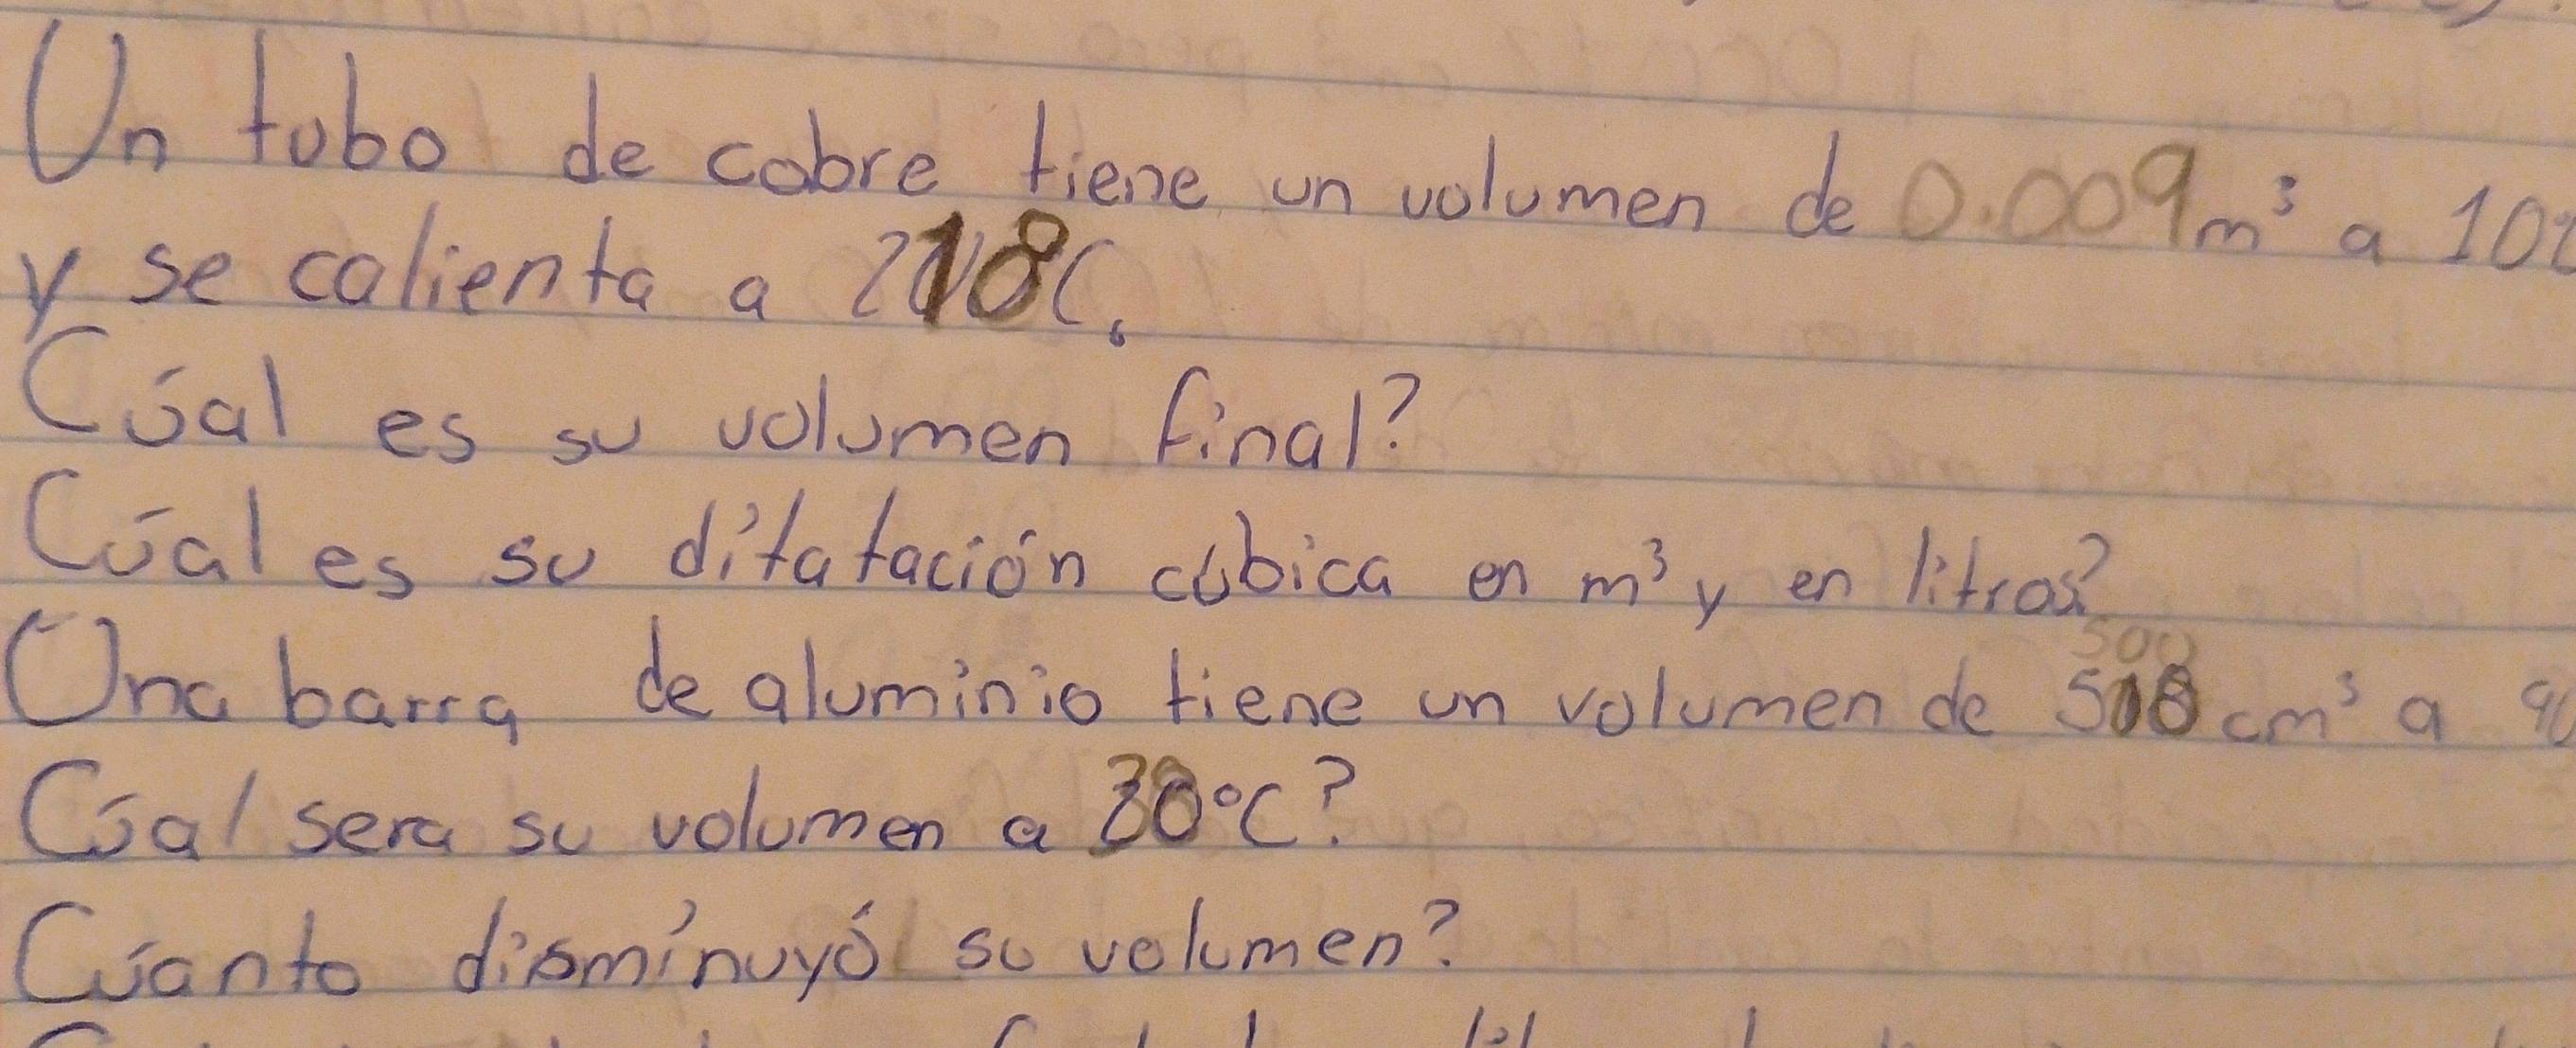 Un tubo de cobre tiene un volumen de 0.009 m³ a 10
y se calienta a 218C.
Cúal es su volumen final?
Cúal es su ditatación cúbica en m³ y en litros?
500
Una barra de aluminio tiene un volumen de 518 cm³ a 90
Cúal sera su volumen a °C?
Cúanto disminuyó su volumen?